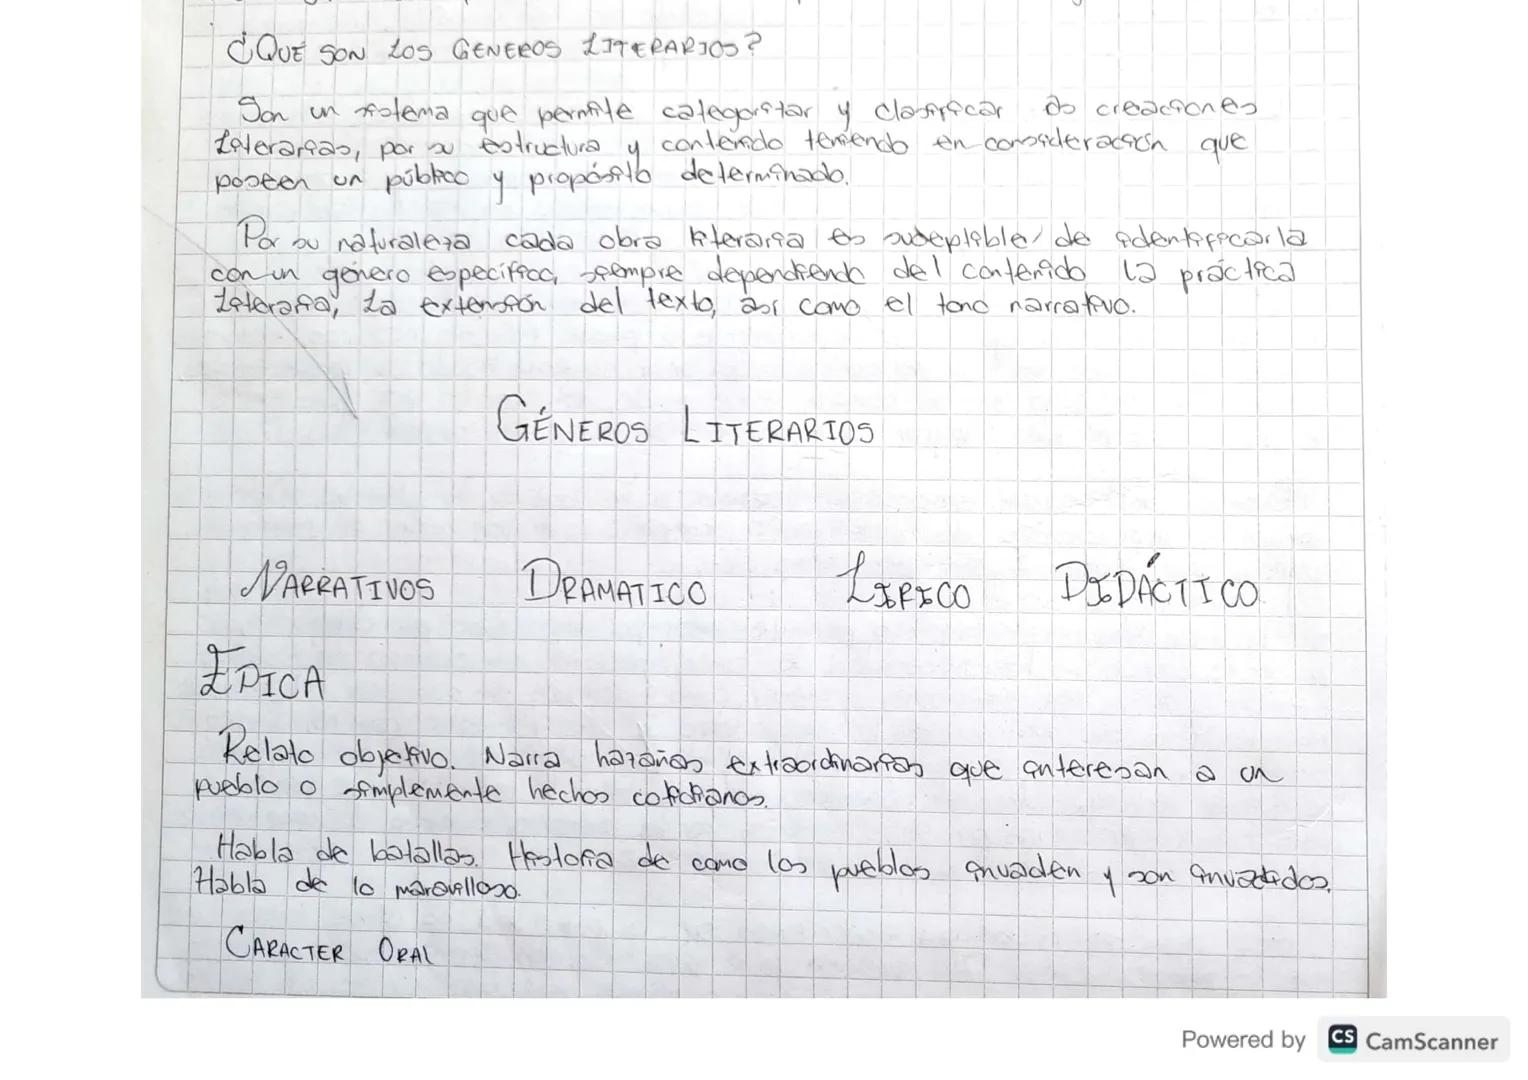 ¿QUÉ SON LOS GENEROS LITERARIOS?
Son un sistema que permite categorizar y clasificar las creaciones
literarias, por su estructura y contenido teniendo en consideración que
poseen un público y propósito determinado.
Por su naturaleza cada obra literaria es suseptible de identificarla
con un género específico, siempre dependiendo del contenido la práctica
literaria, la extensión del texto, así como el tono narrativo.
GÉNEROS LITERARIOS
NARRATIVOS DRAMATICO LIRICO DIDÁCTICO
ÉPICA
Relato objetivo. Narra hazañas extraordinarias que interesan a un
pueblo o simplemente hechos cotidianos.
Habla de batallas. Historia de como los pueblos invaden y son invadidos.
Habla de lo maravilloso.
CARACTER ORAL
Powered by CS CamScanner